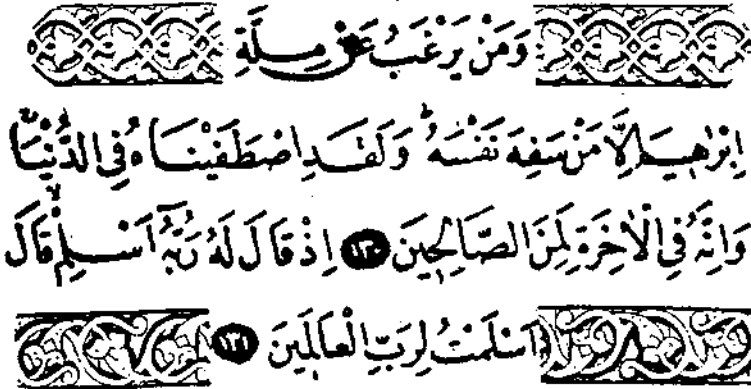 وَمَنْ يَرْغَبُ عَنْ مِلَّةِ
اِبْرٰهٖيمَ اِلَّا مَنْ سَفِهَ نَفْسَهُ ۜ وَلَقَدِ اصْطَفَيْنَاهُ فِي الدُّنْيَا ۚ
وَاِنَّهُ فِي الْاٰخِرَةِ لَمِنَ الصَّالِحٖينَ ﴿١٣٠﴾ اِذْ قَالَ لَهُ رَبُّهُٓ اَسْلِمْ ۙ قَالَ
اَسْلَمْتُ لِرَبِّ الْعَالَمٖينَ ﴿١٣١﴾